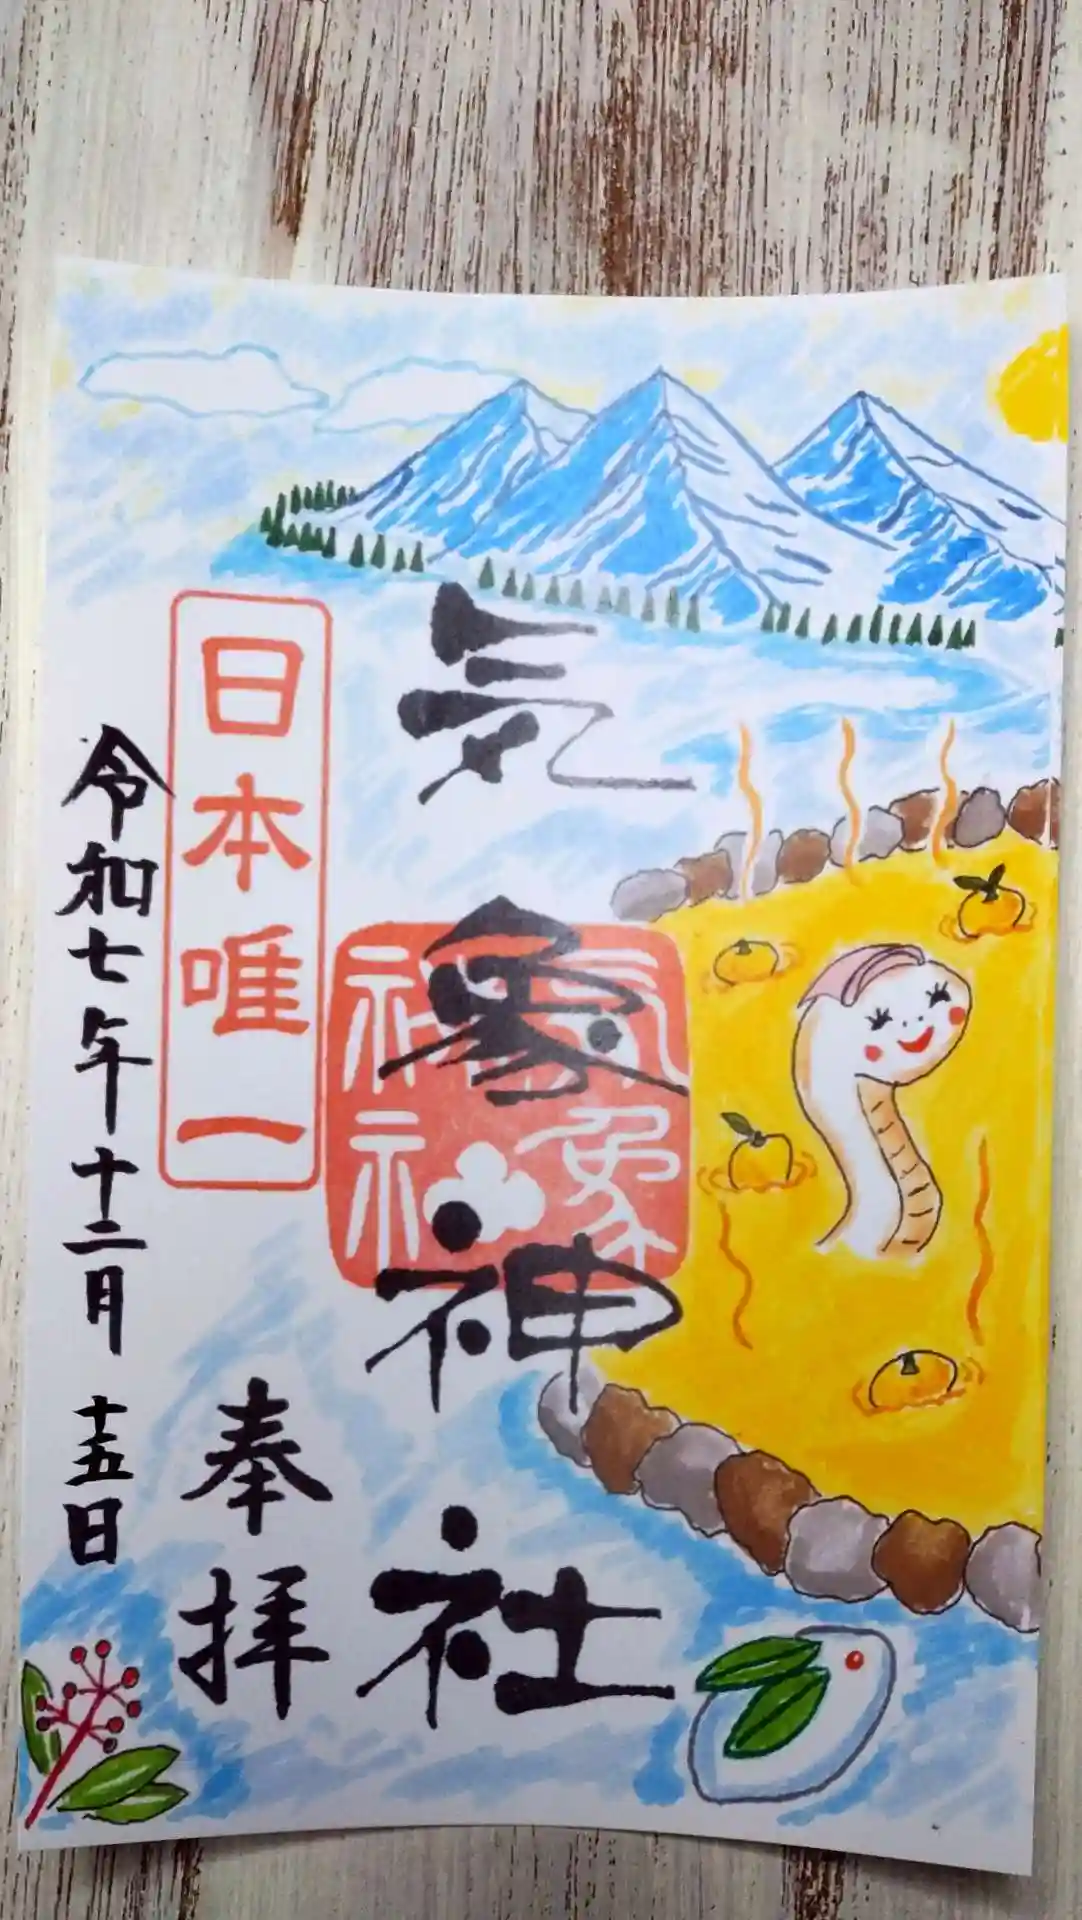 気象神社
気象神社
日本唯一
奉拝
令和七年十二月十五日